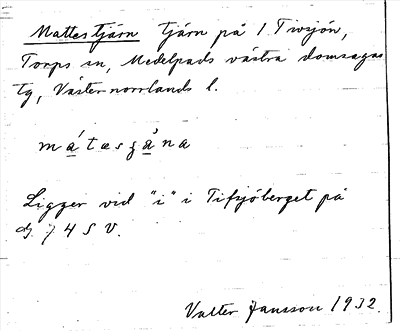 Mattestjärn tjärn på 1 Tivsjön,
Torps sn, Medelpads västra domsagas
tg, Västernorrlands l.
mátasgána
Ligger vid "i" i Tifsjöberget på
74 SV.
Valter Jansson 1932.